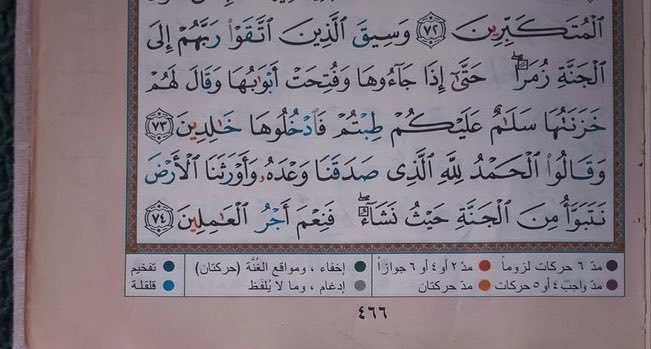 ٱلْمُتَكَبِّرِينَ ٧٢ وَسِيقَ ٱلَّذِينَ ٱتَّقَوْا۟ رَبَّهُمْ إِلَى
ٱلْجَنَّةِ زُمَرًا ۖ حَتَّىٰٓ إِذَا جَآءُوهَا وَفُتِحَتْ أَبْوَٰبُهَا وَقَالَ لَهُمْ
خَزَنَتُهَا سَلَٰمٌ عَلَيْكُمْ طِبْتُمْ فَٱدْخُلُوهَا خَٰلِدِينَ ٧٣
وَقَالُوا۟ ٱلْحَمْدُ لِلَّهِ ٱلَّذِى صَدَقَنَا وَعْدَهُۥ وَأَوْرَثَنَا ٱلْأَرْضَ
نَتَبَوَّأُ مِنَ ٱلْجَنَّةِ حَيْثُ نَشَآءُ ۖ فَنِعْمَ أَجْرُ ٱلْعَٰمِلِينَ ٧٤
مدّ ٦ حركات لزوماً مدّ ٢ أو ٤ أو ٦ جوازاً إخفاء ، ومواقع الغُنَّة (حركتان) تفخيم
مدّ واجب ٤ أو ٥ حركات مدّ حركتان إدغام ، وما لا يُلفَظ قلقلة
٤٦٦